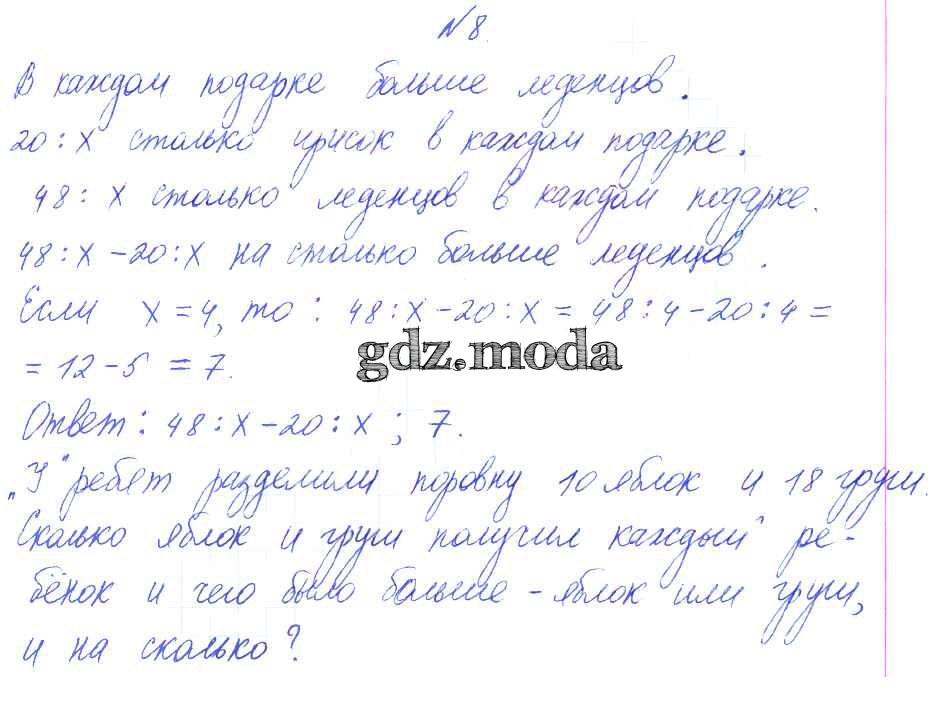 № 8.
В каждом подарке больше леденцов.
20 : x столько ирисок в каждом подарке.
48 : x столько леденцов в каждом подарке.
48 : x - 20 : x на столько больше леденцов.
Если x = 4, то : 48 : x - 20 : x = 48 : 4 - 20 : 4 =
= 12 - 5 = 7.
gdz.moda
Ответ : 48 : x - 20 : x ; 7.
„У" ребят разделили поровну 10 яблок и 18 груш.
Сколько яблок и груш получил каждый ре-
бёнок и чего было больше - яблок или груш,
и на сколько?